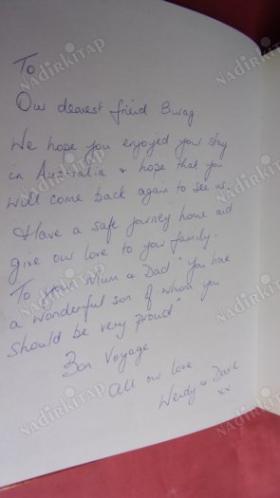 To
Our dearest friend Burag
We hope you enjoyed your stay
in Australia & hope that you
will come back again to see us.
Have a safe journey home and
give our love to your family.
To your Mum & Dad "You have
a wonderful son of whom you
should be very proud"
Bon Voyage
All our love
Wendy & Dave
xx
NADİRKİTAP